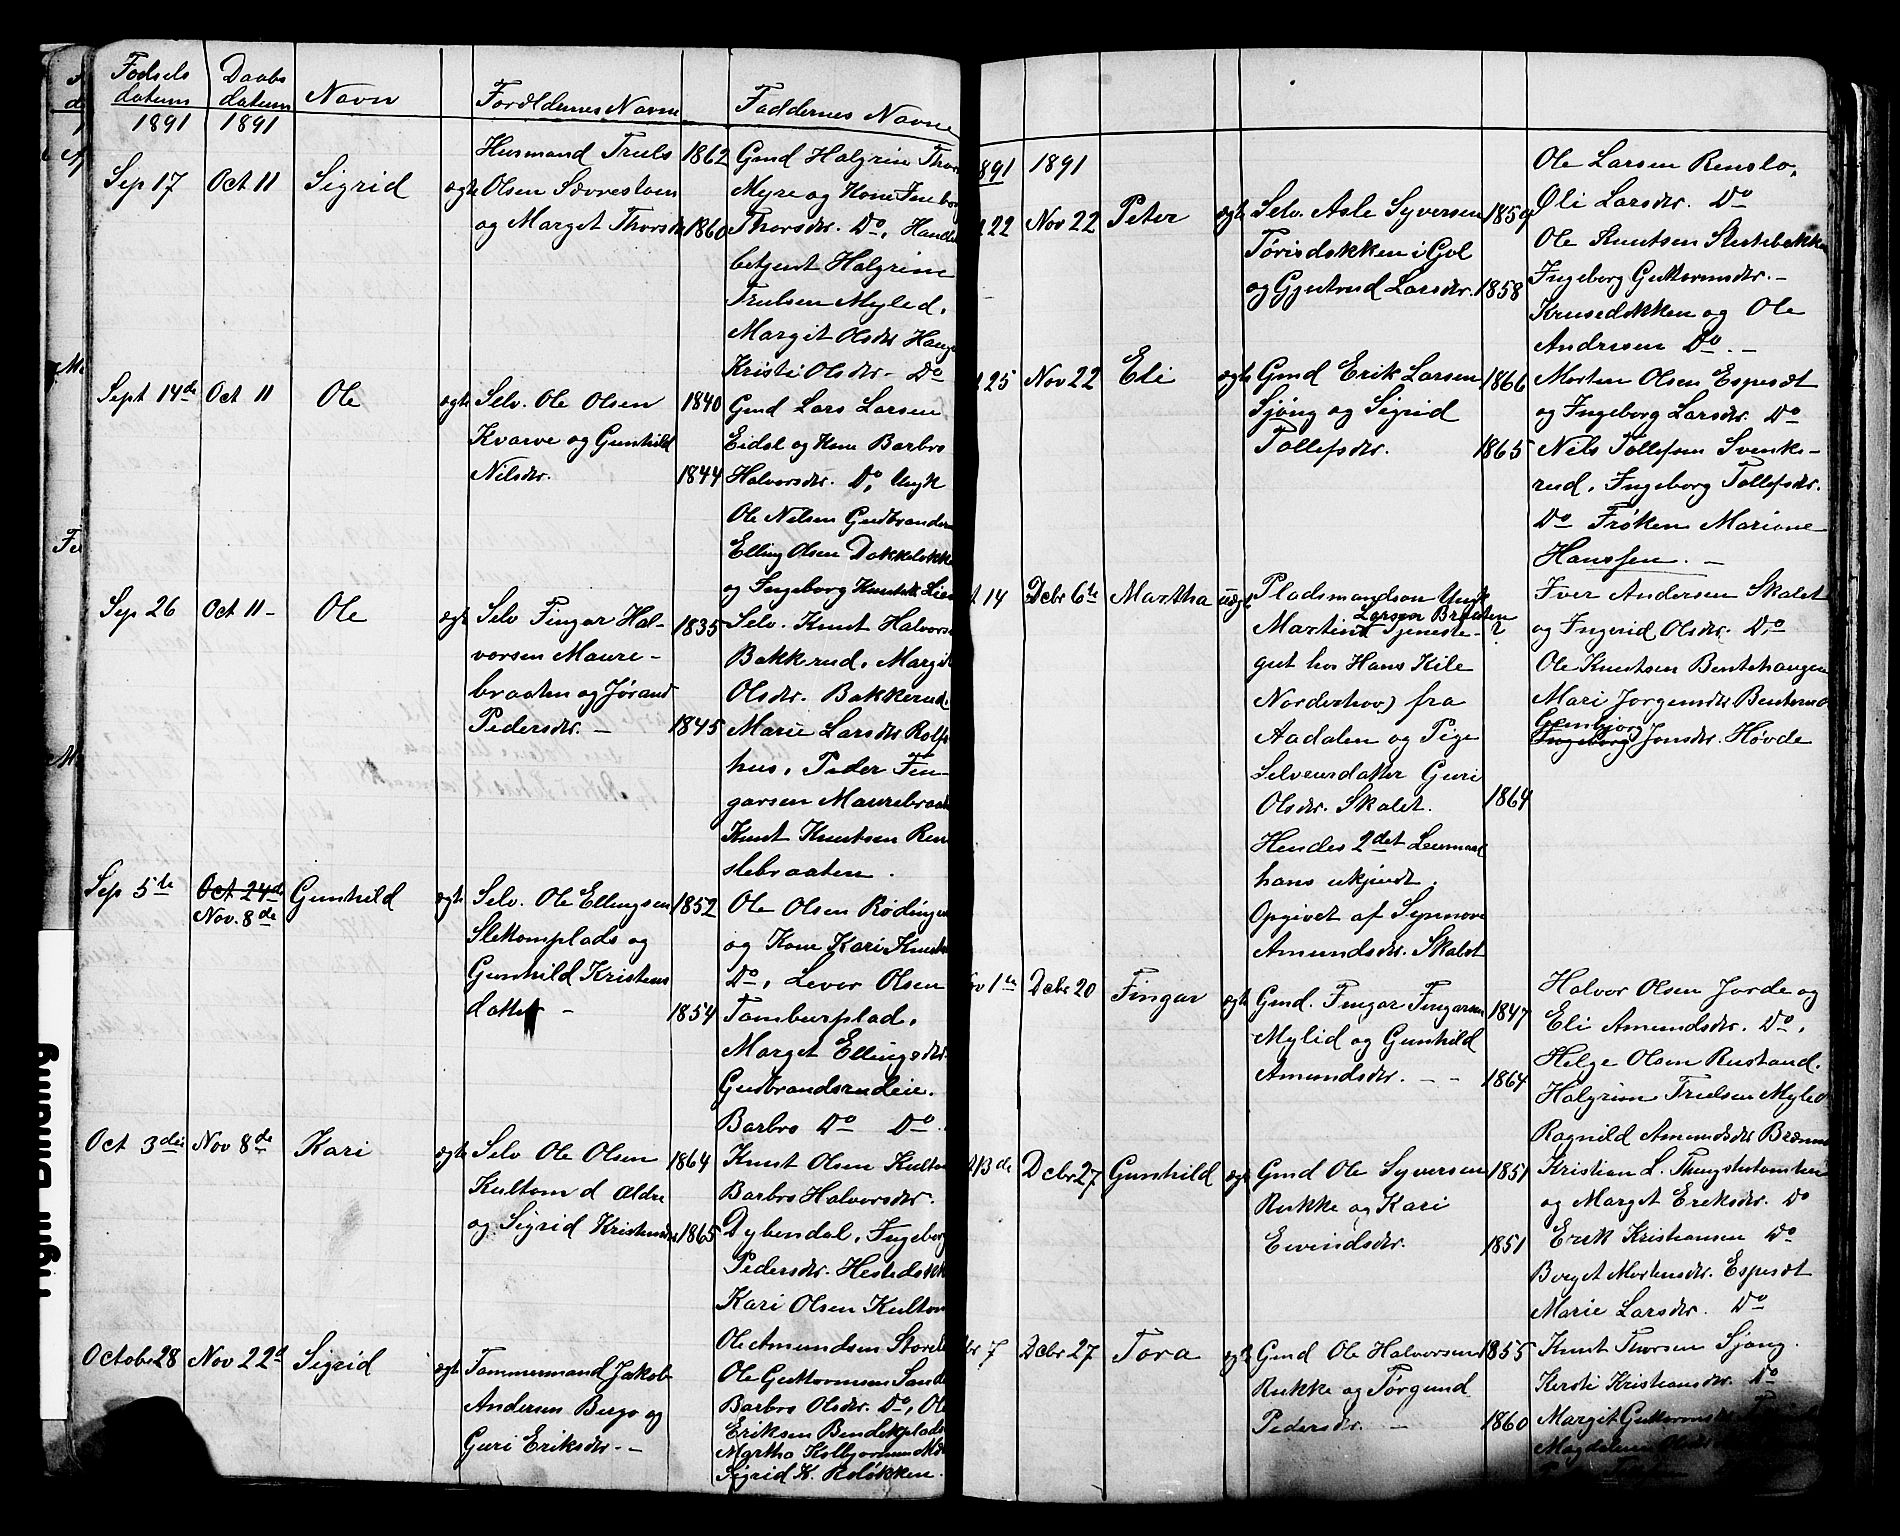 Fødsels datum | Daabs datum | Navn | Forældernes Navne | Faddernes Navne
1891 1891
Sep 17 Oct 11 Sigrid ægte
Husmand Truls 1862
Olsen Sævrestuen
og Marget Thorsdtr 1860
Gmd Halgrim Thor
Myre og Kone Ingeborg
Thorsdtr. Do, Handels
betjent Halgrim
Trulsen Mylid,
Margit Olsdtr Hauge
Kristi Olsdtr - Do
Sept 14de Oct 11 Ole ægte
Selv. Ole Olsen 1840
Kvarve og Gunhild
Nilsdtr. 1844
Gmd Lars Larsen
Eidsl og Kone Barbro
Halvorsdtr. Do, Ungk
Ole Nelsen Gudbrandsru
Elling Olsen Dokkeløkke
og Ingeborg Knutsdtr Lien
Sep 26 Oct 11 - Ole ægte
Selv Fingar Hal- 1835
vorsen Maure-
braaten og Jørand
Pedersdtr. - 1845
Selv. Knut Halvors
Bakkerud, Margit
Olsdtr. Bakkerud,
Marie Larsdtr Rolfs
hus, Peder Fin-
garsen Maurebraat
Knut Knutsen Ren
slebraaten.
Sep 5te Oct 24de Nov. 8de Gunhild ægte
Selv. Ole Ellingsen 1852
Slekomplads og
Gunhild Kristens
datter - 1854
Ole Olsen Rødinge
og Kone Kari Knuts
Do, Lever Olsen
Tomburplad,
Marget Ellingsdtr
Gudbrandsrudeie.
Barbro Do Do
Oct 3die Nov 8de Kari ægte
Selv Ole Olsen 1864
Kultom d ældre
og Sigrid Kristensdtr 1865
Knut Olsen Kultom
Barbro Halvorsdtr.
Dybendal, Ingeborg
Pedersdtr. Hestedokk
Kari Olsen Kultom
October 28 Nov 22d Sigrid ægte
Tømmermand Jakob
Andersen Berge og
Guri Eriksdtr. -
Ole Amundsen Storeli
Ole Guttormsen Sande
Barbro Olsdtr. Do, Ole
Eriksen Bendikplads
Martha Kolbjornsen
Sigrid K. Roløkken.
1891 1891
22 Nov 22 Peter ægte
Selv. Asle Syversen 1859
Torisdokken i Gol
og Gjertrud Larsdtr. 1858
Ole Larsen Renslo,
Oli Larsdtr. Do
Ole Knutsen Slettebakken
Ingeborg Guttormsdtr. -
Krusedokken og Ole
Andresen Do. -
25 Nov 22 Eli ægte
Gmd Erik Larsen 1866
Sjong og Sigrid
Tollefsdtr. 1865
Morten Olsen Espeset
og Ingeborg Larsdtr. Do
Nils Tollefsen Svenke-
rud, Ingeborg Tollefsdtr.
Do Frøken Mariane
Hanssen. -
14 Dcbr 6te Martha uægte
Pladsmandsøn Ungk
Larsen Braaten
Martin Tjeneste- ?
gut hos Hans Kile
Norderhov) fra
Aadalen og Pige
Selveierdatter Guri
Olsdtr. Skalet. 1864
Hendes 2det Leiermaal
hans ukjendt.
Opgivet af Synnøve
Amundsdtr. Skalet
Iver Andersen Skalet
og Ingerid Olsdtr. Do
Ole Knutsen Bentehaugen
Mari Jorgensdtr Benterud
Grenbjor
Ingeborg Jonsdtr. Høvde
Nov 1te Dcbr 20 Fingar ægte
Gmd. Fingar Fingarsen 1847
Mylid og Gunhild
Amundsdtr. - - 1864
Halvor Olsen Jorde og
Eli Amundsdtr. Do,
Helge Olsen Rustand.
Halgrim Trulsen Mylid
Ragnild Amundsdtr Brænn
13de Dcbr 27 Gunhild ægte
Gmd Ole Syversen 1851
Rukke og Kari
Eivindsdtr. 1851
Kristian L. Thingstutomten
og Marget Eriksdtr. Do
Erik Kristiansen Do
Berget Mortensdtr. Espeset
Marie Larsdtr. Do
7 Dcbr 27 Tora ægte
Gmd Ole Halvorsen 1855
Rukke og Torgund
Pedersdtr. - 1860
Knut Thorsen Sjong.
Kersti Kristiansdtr. Do
Margit Guttormsdtr
Magdalena Olsdtr